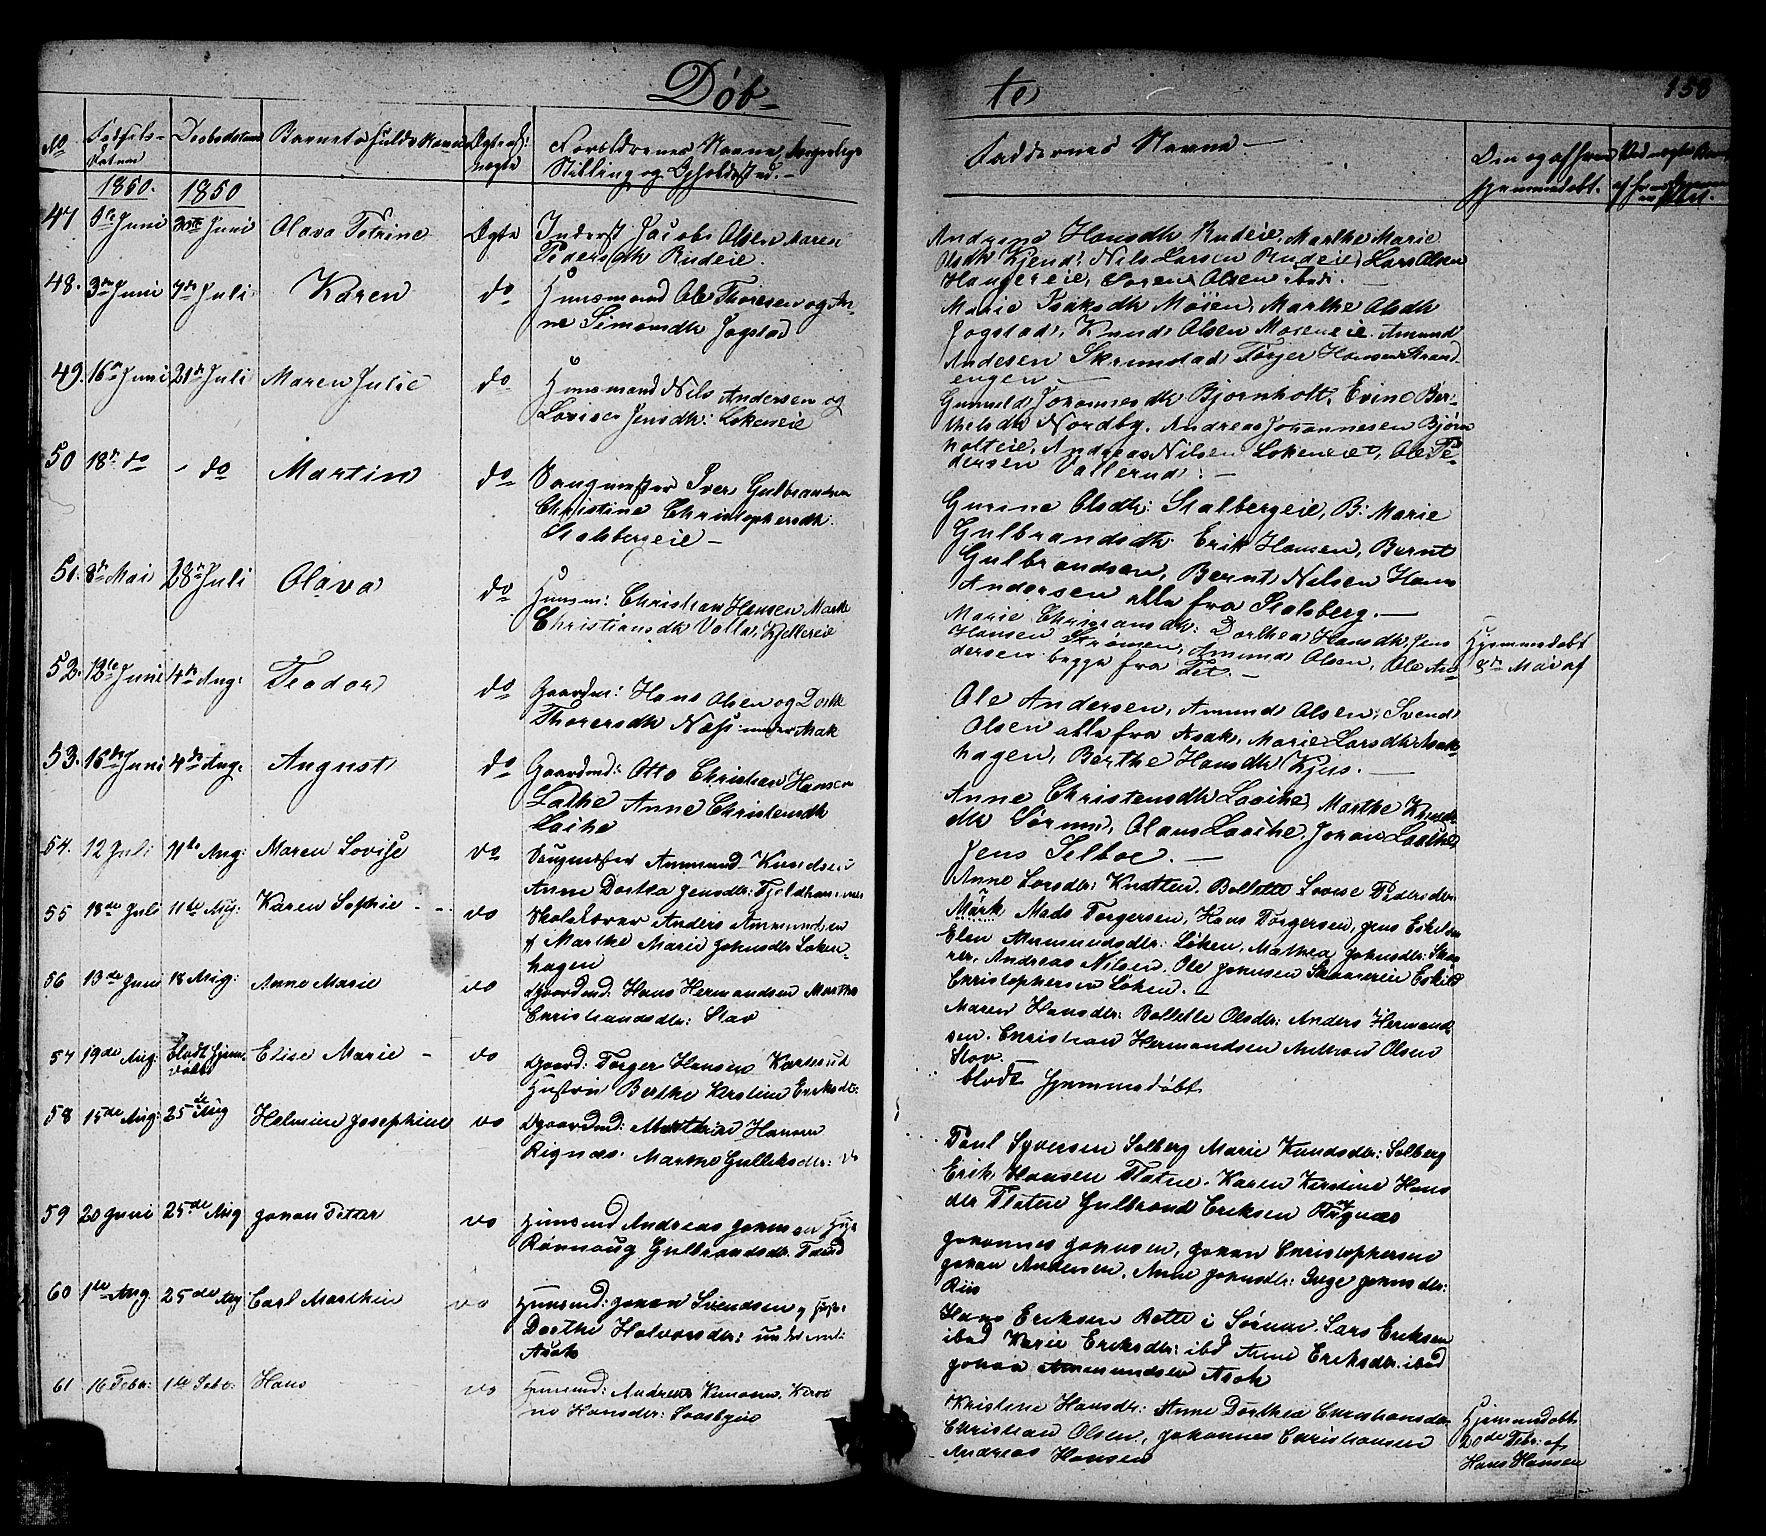 Døb-
te
158
No
Fødsels-
datum
Daabsdatum
Barnets fulde Navn
Ægte el:
uægte
Forældrenes Navne, borgerlige
Stilling og Opholdssted.-
Faddernes Navne-
Om og af hvem
hjemmedøbt.
1850.
1850
47
Juni
30te Juni
Olava Petrine
Ægte
Inderst Jacob Olsen Maren
Pedersdtr Rudeie.
Andrine Hansdtr Rudeie, Marthe Marie
Olsdtr Kjend, Nils Larsen Rudeie, Lars Olsen
Haugereie, Soren Olsen ibid.
48.
3die Juni
7de Juli
Karen
do
Huusmand Ole Thoresen og An-
ne Simonsdtr Jogstad
Marie Isaksdtr Moien, Marthe Olsdtr
Jogstad, Knud Olsen Moseneie. Amund
Andersen Skrimstad Torger Hansen Strand-
engen
49.
16de Juni
21de Juli
Maren Julie
do
Huusmand Nils Andersen og
Lovise Jensdtr: Lokeneie
Gunnild Johannesdtr Bjornholt, Evine Ber-
thelsdtr Nordby. Andreas Johannesen Bjørn
holteie, Andreas Nilsen Lokeneiet, Ole Pe-
dersen Vallerud. -
50
18de do
- do
Martin
do
Saugmester Iver Gulbrandsen
Christine Christophersdtr.
Stalsbergeie -
Gurine Olsdtr: Stalbergeie, B: Marie
Gulbrandsdtr. Erik Hansen, Bernt
Gulbrandsen, Bernt Nilsen Hans
Andersen alle fra Stalsberg. -
51.
8de Mai
28de Juli
Olava
do
Huusm: Christian Hansen Marte
Christiansdtr Volla, Kjellereie
Marie Christiansdtr: Dorthea Hansdtr, Jens
Hansen Strømen, Amund Olsen, Ole An-
dersen begge fra Fet. -
Hjemmedøbt
8de Mai af
52.
12te Juni
4de Aug:
Teodor
do
Gaardm: Hans Olsen og Dorthe
Thoresdtr Næss under Asak
Ole Andersen, Amund Olsen, Svend
Olsen alle fra Asak, Marie Larsdtr Asak-
hagen, Berthe Hansdtr Kjus. -
53.
16de Juni
4de Aug.
August
do
Gaardmd: Otto Christian Hansen
Lathe Anne Christensdtr
Laike
Anne Christensdtr Laaike, Marthe Knuds-
dtr Sørum, Olaus Laaike, Johan Laaike
Jens Selboe. -
54.
12 Juli
11te Aug:
Maren Lovise
do
Saugmester Ammund Knudsen
Anne Dortea Jensdtr: Fjeldhammer
Anne Larsdtr: Knatten. Bollette Lovise Pedersdtr.
Mørk Mads Torgersen, Hans Torgersen, Jens Eskilsen
55
18de Juli
11te Aug:
Karen Sophie - -
do
Skolelærer Anders Ammundsen
og Marthe Marie Johnsdtr Løken-
hagen
Elen Ammundsdtr: Løken, Mathea Johnsdtr: Skaa
rer, Andreas Nilsen, Ole Johnsen Skaareren Eskild
Christophersen Løken. -
56
13de Juni
18 Aug:
Anne Marie
do
Gaardmd: Hans Hermandsen Marthe
Christiansdtr: Stav
Maren Hansdtr: Bollette Olsdtr: Anders Hermand-
sen. Christian Hermandsen Anthon Olsen
Stav.
57
19de Aug:
blodt hjem-
Elise Marie -
do
Gaard: Torger Hansen Karterud
Hustru Berthe Kerstine Eriksdtr:
blodt Hjemmedøbt
58
15de Aug:
25de Aug
Helmine Josephine
do
Gaardmd: Mathias Hansen
Rignæs. Marthe Gulliksdtr: do
Paul Syversen Solberg Marie Knudsdtr: Solberg
Erik Hansen Flateie. Karen Kirstine Hans
dtr Flateie Gulbrand Eriksen Rignæs
59
20 Juni
25de Aug
Johan Petter
do
Huusmd Andreas Johnsen Hus
Rønnaug Gulbrandsdtr.
Johannes Johnsen, Johan Christophersen
Johan Andersen. Anne Johnsdtr: Inge Johnsdtr:
Riis
60
1te Aug.
25de Aug
Carl Marthin
do
Huusmd: Johan Svendsen og Hus-
Dorthe Halvorsdtr: under
Asak
Hans Eriksen Rotte i Sørum. Lars Eriksen
ibid Karie Eriksdtr: ibd Anne Eriksdtr: ibid
Johan Ammundsen Asak
61
16 Febr:
Hans
do
Huusmd: Andreas
ne Hansdtr:
Kristine Hansdtr: Anne Dorthea Christiansdtr
Christian Olsen, Johannes Christiansen
Andreas Hansen
Hjemmedøbt
20de Febr: af
Hans Hansen